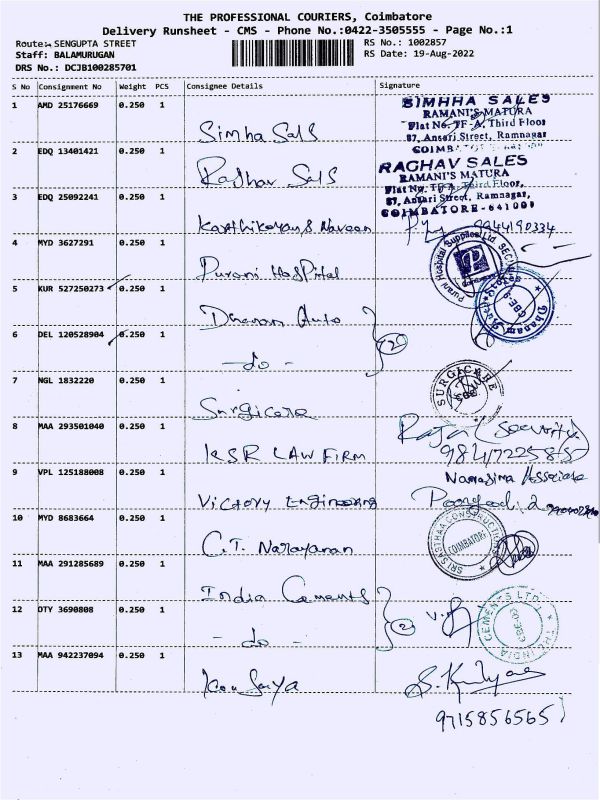 THE PROFESSIONAL COURIERS, Coimbatore
Delivery Runsheet - CMS - Phone No.:0422-3505555 - Page No.:1
Route: SENGUPTA STREET
RS No.: 1002857
Staff: BALAMURUGAN
RS Date: 19-Aug-2022
DRS No.: DCJB100285701
S No Consignment No Weight PCS Consignee Details Signature
1 AMD 25176669 0.250 1
Simha Sals
SIMHHA SALES
RAMANI'S MATURA
Flat No. TF-A, Third Floor
87, Ansari Street, Ramnagar
2 EDQ 13401421 0.250 1
Raghav Sals
RAGHAV SALES
RAMANI'S MATURA
Flat No. TF-A, Third Floor,
87, Ansari Street, Ramnagar,
COIMBATORE-641009
3 EDQ 25092241 0.250 1
Karthikeyan & Naveen
9944190334
4 MYD 3627291 0.250 1
Purani Hospital
Purani Hospital Supplies Ltd.
5 KUR 527250273 0.250 1
Dhanam Auto
6 DEL 120528904 0.250 1
- do -
2
7 NGL 1832220 0.250 1
Surgicare
SURGICARE
8 MAA 293501040 0.250 1
KSR LAW FIRM
Raja (Security)
9 VPL 125188008 0.250 1
Victory Engineering
10 MYD 8683664 0.250 1
C.T. Narayanan
SRI SASTHAA CONSTRUCTION
COIMBATORE
11 MAA 291285689 0.250 1
India Cements
12 OTY 3690808 0.250 1
- do -
2
THE INDIA CEMENTS LTD.
13 MAA 942237094 0.250 1
9715856565